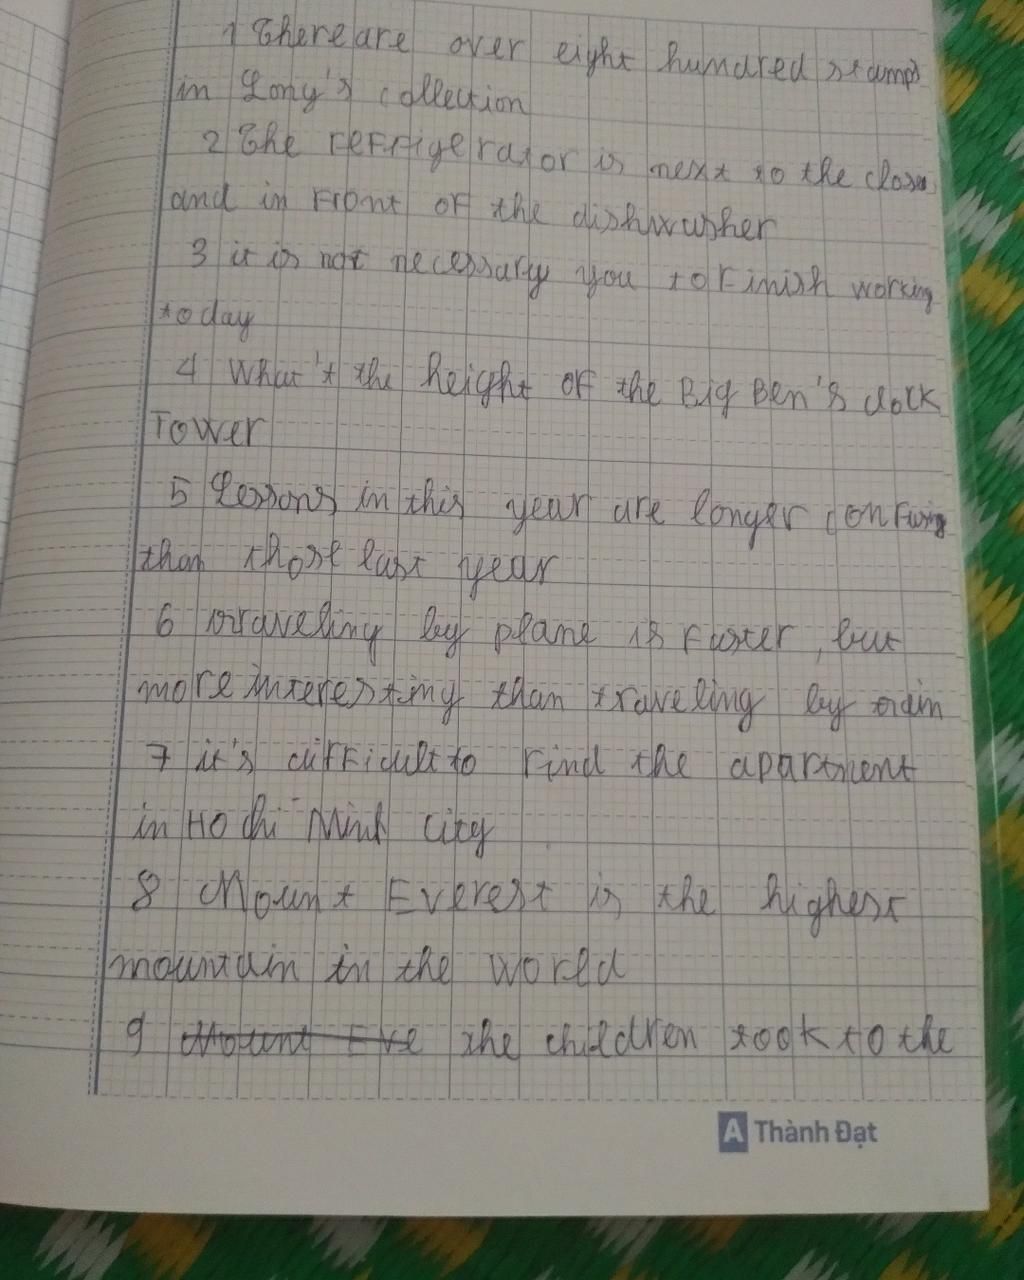 1 There are over eight hundred stamps
in Lony's collection
2 The refrigerator is next to the
and in front of the dishwasher
3 it is not necessary you to finish working
today
4 What's the height of the Big Ben's clock
Tower
5 Lessons in this year are longer confusing
than those last year
6 traveling by plane is faster, but
more interesting than traveling by train
7 it's difficult to find the apartment
in Ho chi Minh city
8 Mount Everest is the highest
mountain in the world
9 Mount Eve the children took to the
A Thành Đạt